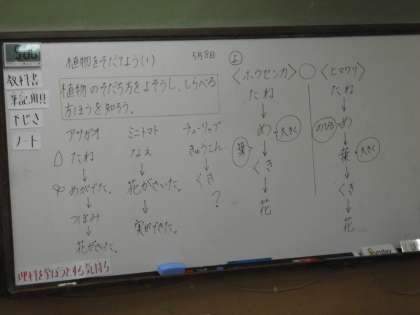 植物をそだてよう(1)
5月8日
教科書
筆記用具
下じき
ノート
植物のそだち方をよそうし、しらべる
方ほうを知ろう。
アサガオ
たね
↓
めがでた。
↓
つぼみ
↓
花がさいた。
ミニトマト
なえ
↓
花がさいた。
↓
実ができた。
チューリップ
きゅうこん
↓
くき
?
よ
〈ホウセンカ〉
たね
↓
め
大きく
↓
葉
くき
↓
花
〈ヒマワリ〉
たね
↓
め
↓
葉
大きく
↓
くき
↓
花